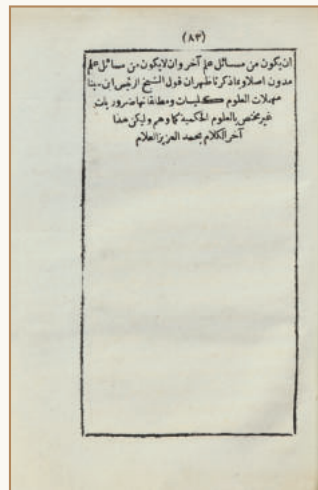 (٨٣)
ان يكون من مسائل علم آخر وان لا يكون من مسائل علم
مدون اصلا وبماذكرنا ظهران قول الشيخ الرئيس ابن سينا
مهملات العلوم كليات ومطلقاتها ضروريات
غير مختص بالعلوم الحكمية كما وهم وليكن هذا
آخر الكلام بحمد العزيز العلام